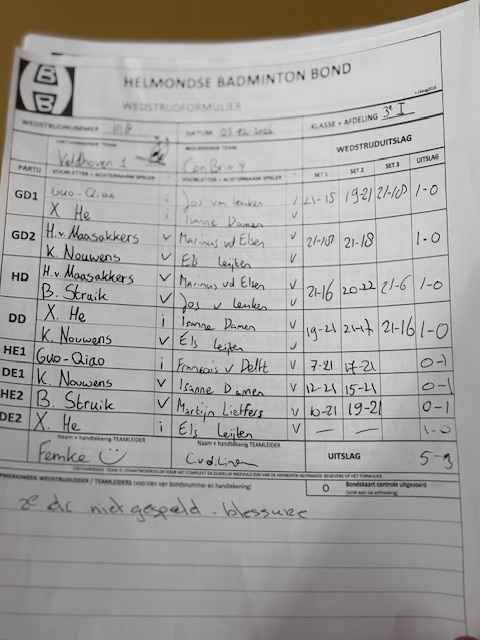 HELMONDSE BADMINTON BOND
WEDSTRIJDFORMULIER
WEDSTRIJDNUMMER DATUM KLASSE + AFDELING 3e I
Veldhoven 1 WEDSTRIJDUITSLAG
PARTIJ VOORLETTER + ACHTERNAAM SPELER VOORLETTER + ACHTERNAAM SPELER SET 1 SET 2 SET 3 UITSLAG
GD1 Guo-Qiao i Jos van Leuken 21-15 19-21 1-0
X He i Isanne Damen
GD2 H.v Maasakkers v Marinus vd Elsen v 21-18 1-0
K. Nouwens v Els Leijten v
HD H.v Maasakkers v Marinus vd Elsen v 21-16 20-22 21-6 1-0
B. Struik v Jos v Leuken v
DD X. He i Isanne Damen v 19-21 21-17 21-16 1-0
K. Nouwens v Els Leijten v
HE1 Guo-Qiao i Francois v Delft v 7-21 17-21 0-1
DE1 K. Nouwens v Isanne Damen v 12-21 15-21 0-1
HE2 B. Struik v Martijn Lieffers v 10-21 19-21 0-1
DE2 X. He i Els Leijten v — — 1-0
Naam + handtekening TEAMLEIDER Naam + handtekening TEAMLEIDER
Femke UITSLAG 5-3
OPMERKINGEN WEDSTRIJDLEIDER / TEAMLEIDERS (voorzien van bondsnummer en handtekening) O Bondskaart controle uitgevoerd
2e de niet gespeeld - blessure